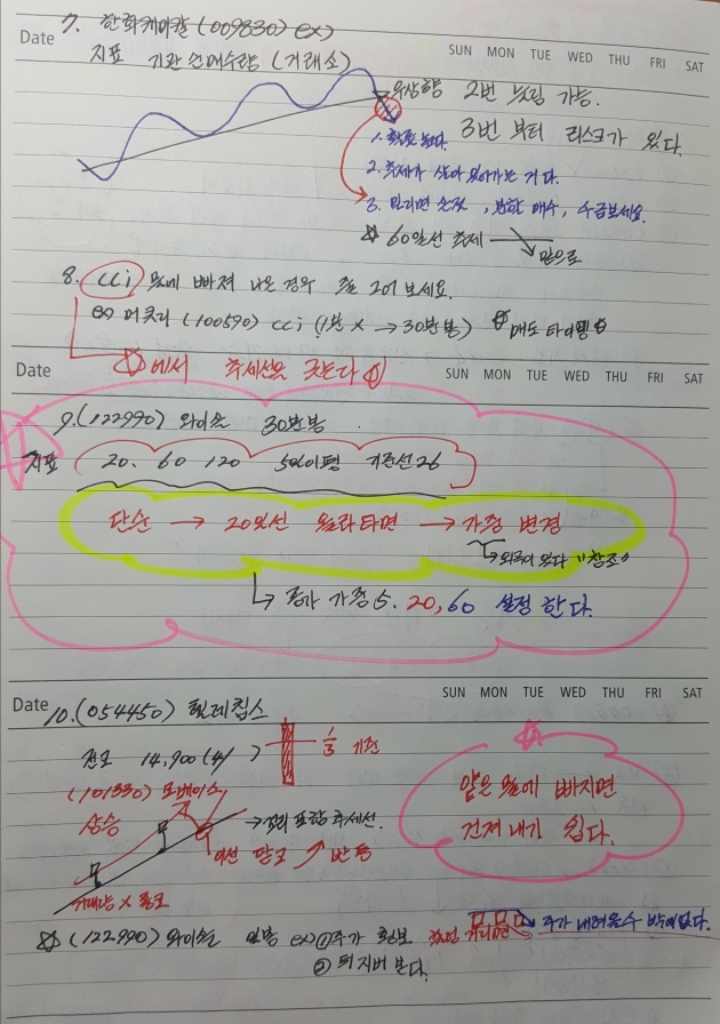 Date 7. 한화케미칼 (009830) ex)
SUN MON TUE WED THU FRI SAT
지표 기관 순매수량 (거래소)
우상향 2번 눌림 가능.
3번 부터 리스크가 있다.
1. 확률 높다.
2. 추세가 살아 있어가는 거다.
3. 밀리면 손절, 분할 매수, 수급보세요.
☆ 60일선 추세 → 밑으로
8. cci 물에 빠져 나온 경우 줄 그어 보세요.
ex) 머큐리 (100590) cci (1분 x → 30분봉) ☆ 매도 타이밍 ☆
☆에서 추세선을 긋는다
Date
SUN MON TUE WED THU FRI SAT
9. (122990) 와이솔 30분봉
지표 20. 60 120 5일이평 기준선 26
단순 → 20일선 올라타면 → 가중 변경
"참조"
↳ 종가 가중 5. 20, 60 설정 한다.
Date 10. (054450) 텔레칩스
SUN MON TUE WED THU FRI SAT
전고 14,900
1/3 기준
(101330) 모베이스
상승
→ 꼬리 포함 추세선.
이선 닿고 반등
거래량 x
얕은 물에 빠지면
건져 내기 쉽다.
☆ (122990) 와이솔 일봉 ex) ① 주가
주가 내려올수 밖에 없다.
② 뒤지버 본다.